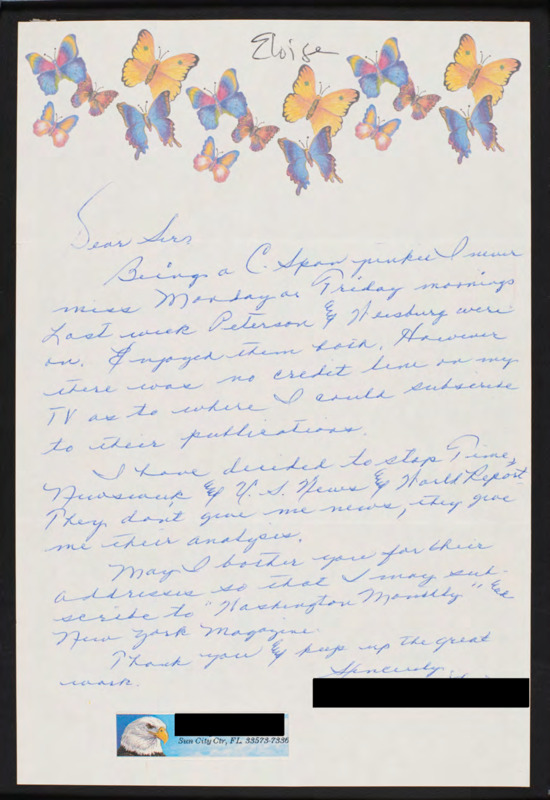 Eloise
Dear Sirs
Being a C. Span junkie I never
miss Monday or Friday mornings
Last week Peterson & Weisburg were
on. Enjoyed them both. However
there was no credit line on my
TV as to where I could subscribe
to their publications.
I have decided to stop Time,
Newsweek & U. S. News & World Report
They don't give me news, they give
me their analysis.
May I bother you for their
addresses so that I may sub-
scribe to "Washington Monthly" &
New York Magazine.
Thank you & keep up the great
work.
Sincerely,
Sun City Ctr, FL 33573-7336